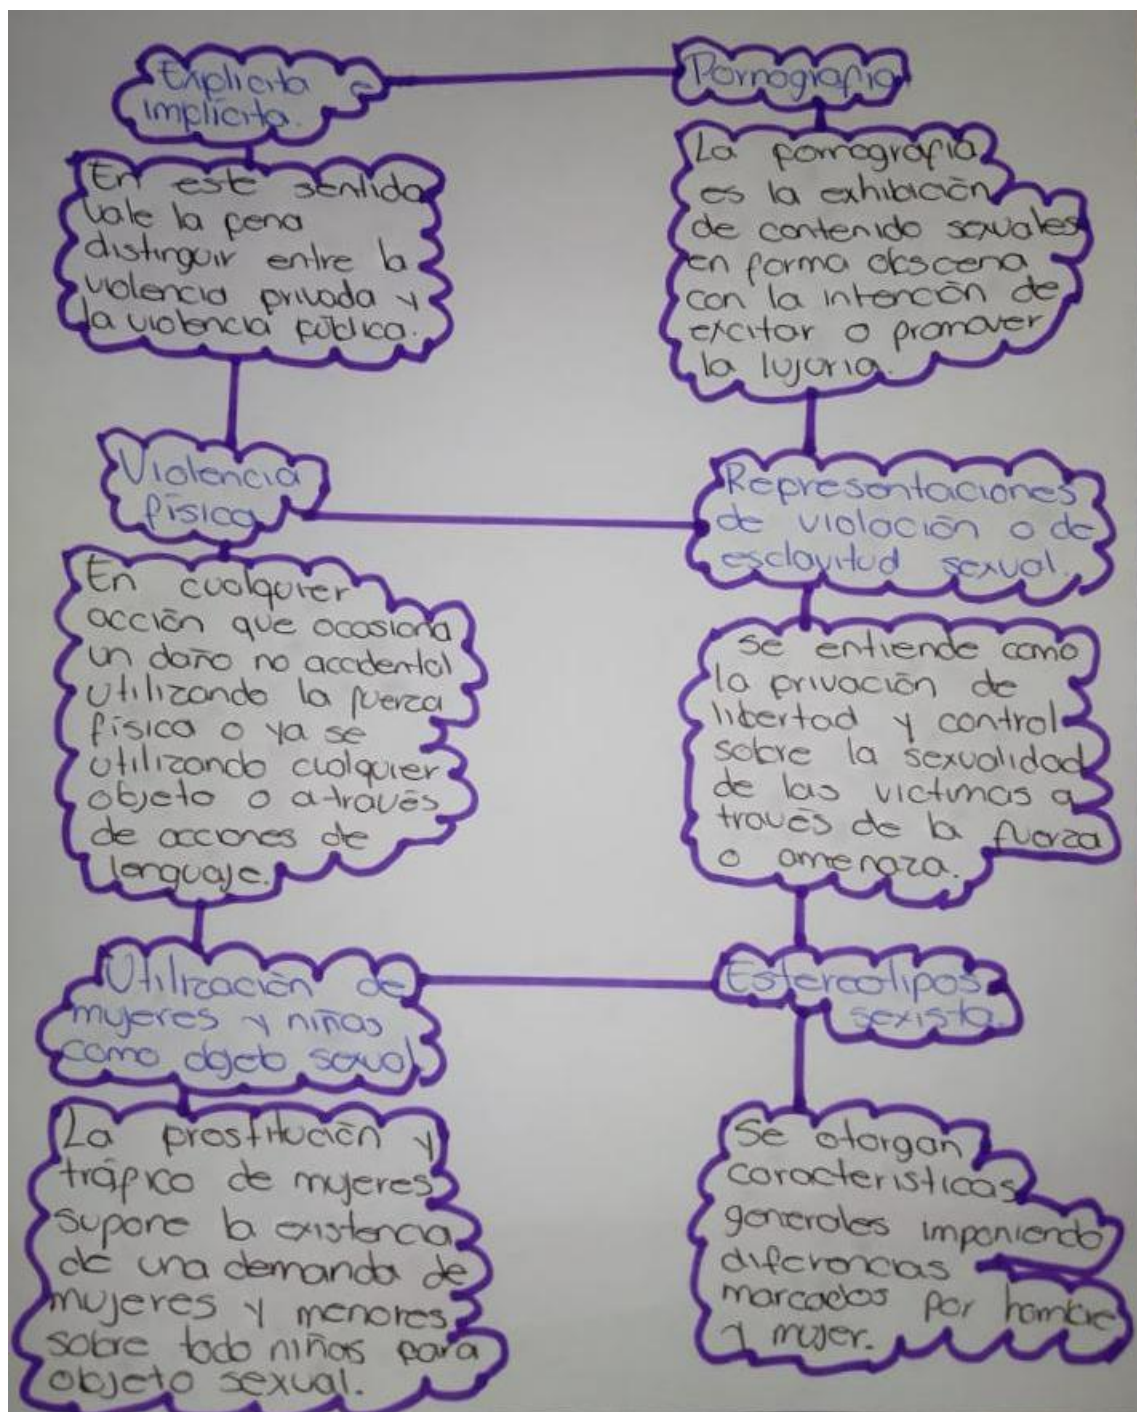 Explícita e
implícita.
En este sentido
vale la pena
distinguir entre la
violencia privada y
la violencia pública.
Violencia
física
En cualquier
acción que ocasiona
un daño no accidental
utilizando la fuerza
física o ya se
utilizando cualquier
objeto o a través
de acciones de
lenguaje.
Utilización de
mujeres y niñas
como objeto sexual.
La prostitución y
tráfico de mujeres
supone la existencia
de una demanda de
mujeres y menores
sobre todo niñas para
objeto sexual.
Pornografía
La pornografía
es la exhibición
de contenido sexuales
en forma obscena
con la intención de
excitar o promover
la lujuria.
Representaciones
de violación o de
esclavitud sexual.
se entiende como
la privación de
libertad y control
sobre la sexualidad
de las victimas a
través de la fuerza
o amenaza.
Estereotipos
sexista.
Se otorgan
caracteristicas
generales imponiendo
diferencias
marcados por hombre
y mujer.